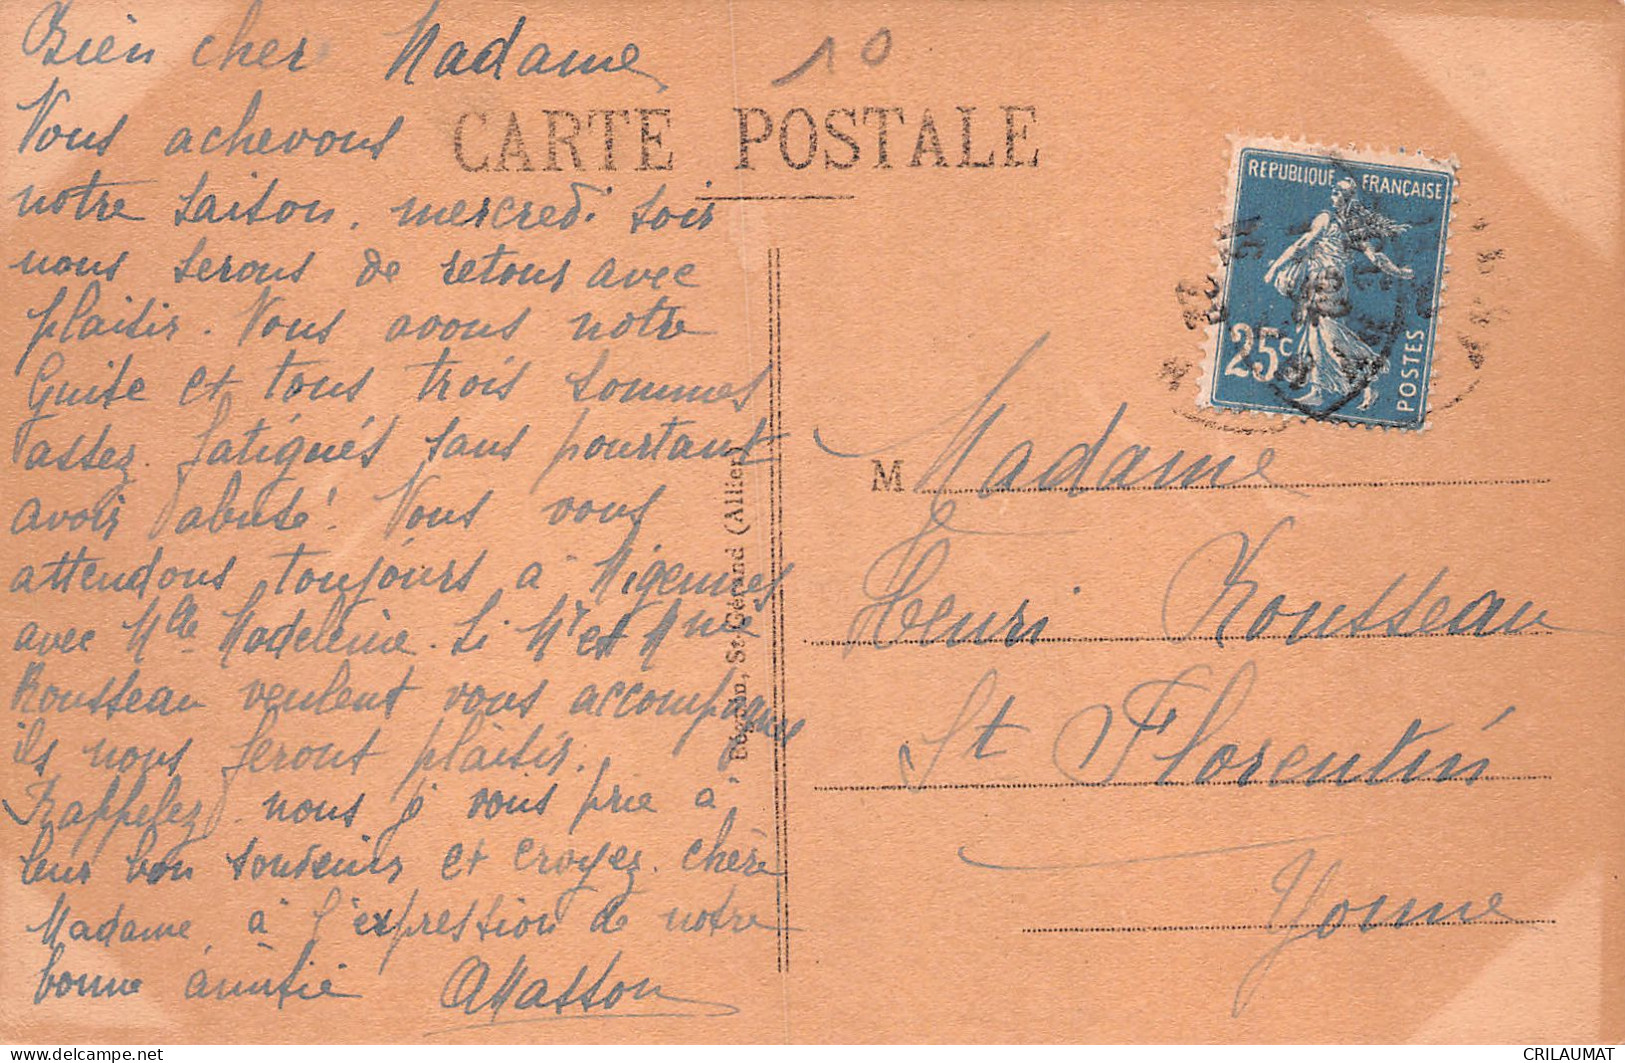 Bien cher Madame
Nous achevons
notre saison. mercredi soir
nous serons de retour avec
plaisir. Nous avons notre
Guite et tous trois sommes
assez fatigués sans pourtant
avoir abusé. Nous vous
attendons toujours à Migennes
avec Mlle Madeleine. Si Mr et Mme
Rousseau veulent vous accompagner
ils nous feront plaisir.
Rappelez nous je vous prie à
leur bon souvenir et croyez chère
Madame, à l'expression de notre
bonne amitié AMasson
10
CARTE POSTALE
St-Gérand (Allier)
REPUBLIQUE FRANÇAISE
25c
POSTES
M Madame
Henri Rousseau
St Florentin
Yonne
delcampe.net
CRILAUMAT